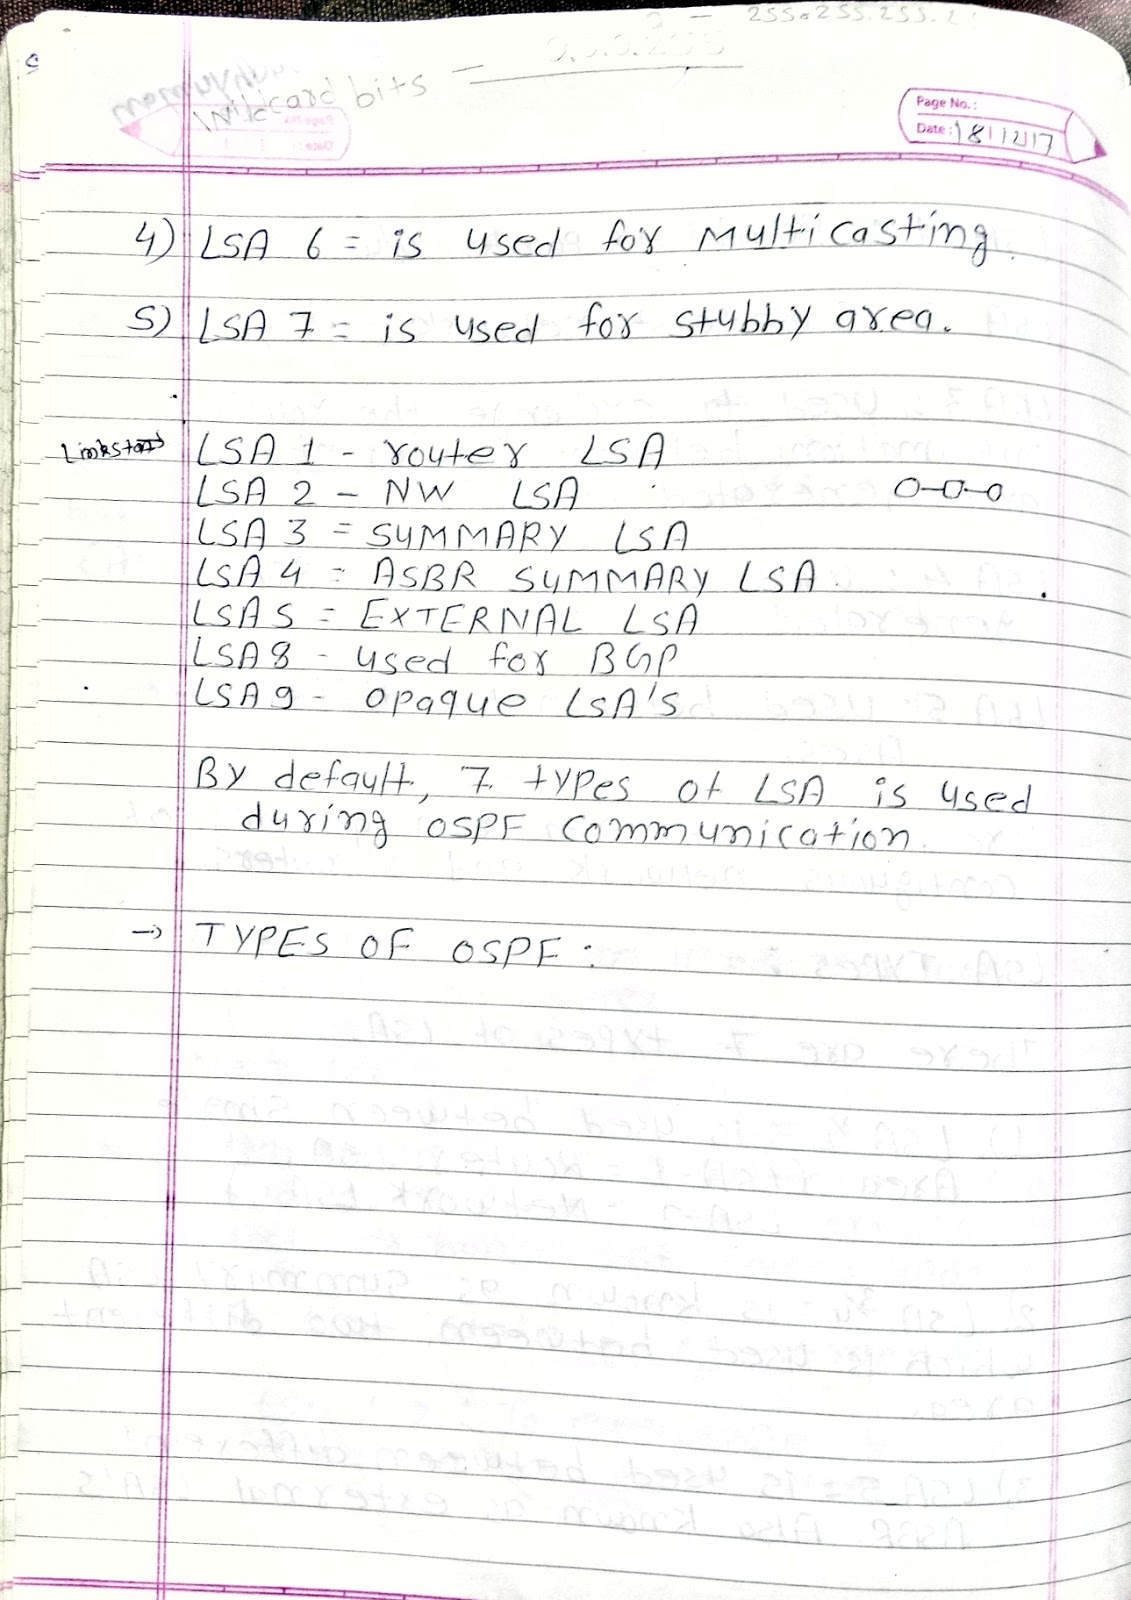 255.255.255.2
Wildcard bits -
Page No.:
Date: 18/12/17
4) LSA 6 = is used for Multicasting.
5) LSA 7 = is used for stubby area.
LSA 1 - router LSA
LSA 2 - NW LSA
LSA 3 = SUMMARY LSA
LSA 4 = ASBR SUMMARY LSA.
LSA 5 = EXTERNAL LSA
LSA 8 - used for BGP
LSA 9 - opaque LSA's
By default, 7 types of LSA is used
during OSPF communication.
→ TYPES OF OSPF: